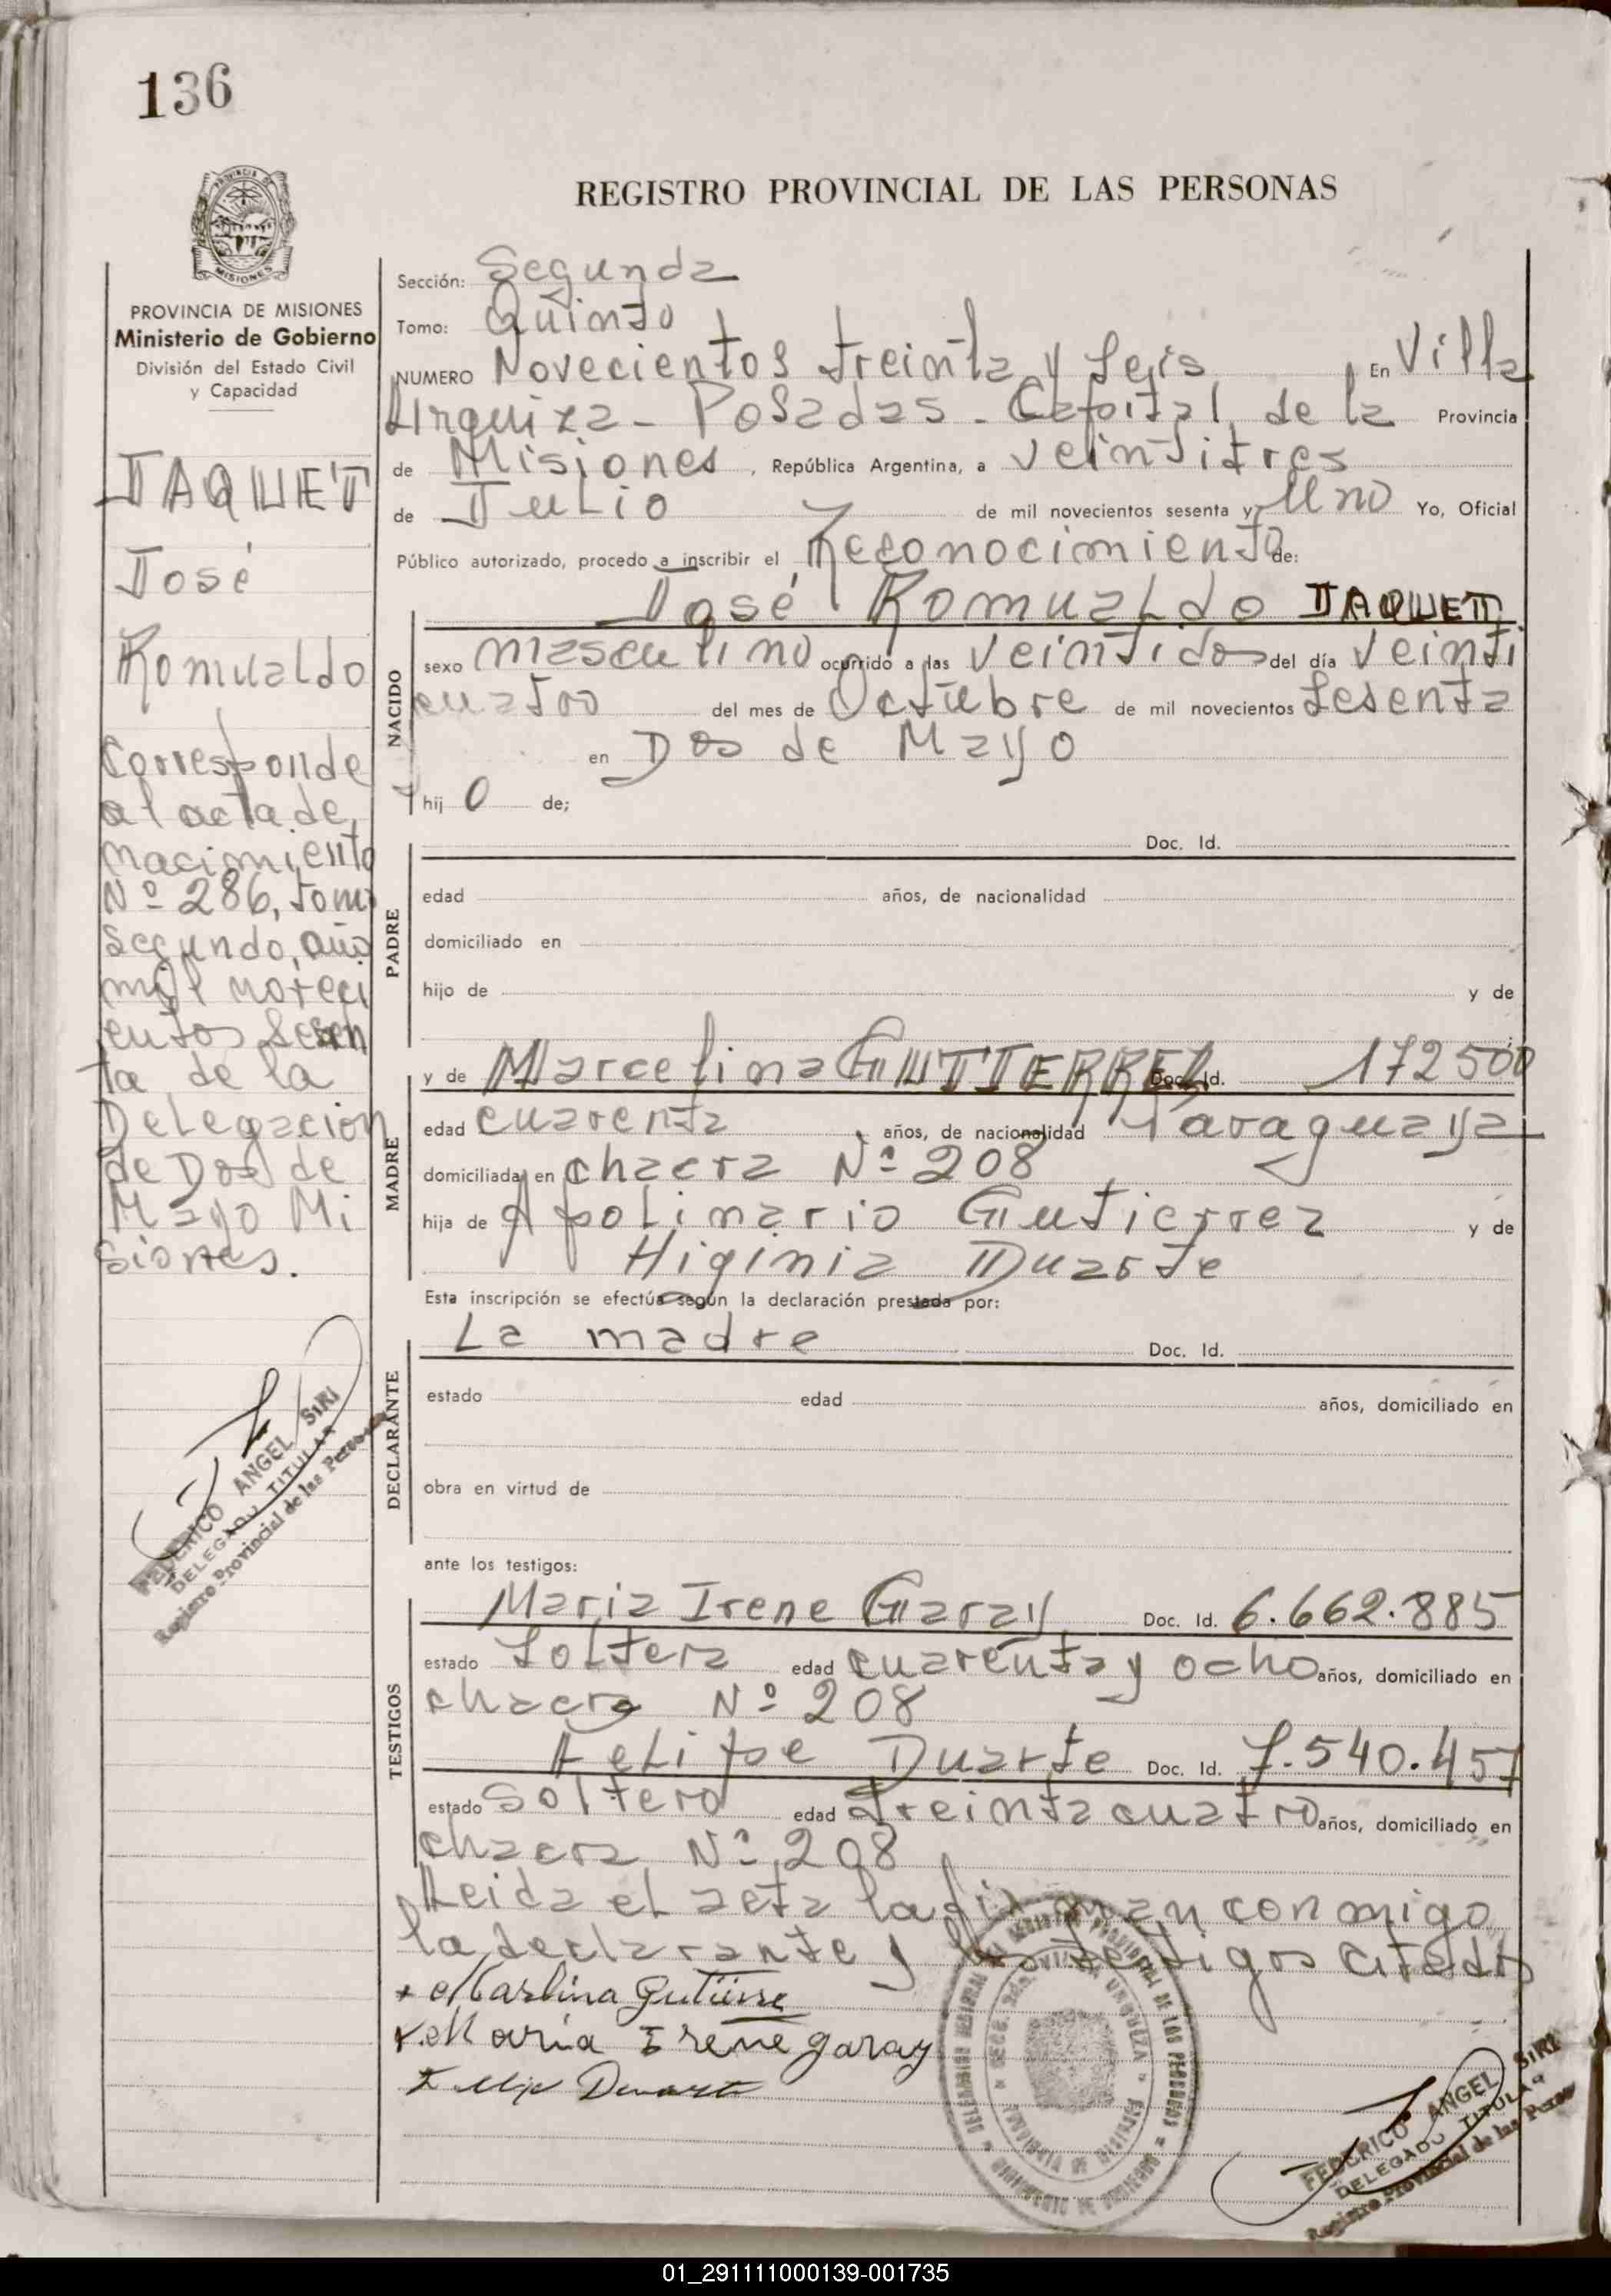 136
REGISTRO PROVINCIAL DE LAS PERSONAS
PROVINCIA DE MISIONES
Ministerio de Gobierno
División del Estado Civil
y Capacidad
JAQUET
José
Romualdo
Corresponde
al acta de
nacimiento
Nº 286, tomo
segundo, año
mil noveci
entos sesen
ta de la
Delegacion
de Dos de
Mayo Mi
siones.
FEDERICO ANGEL SIRI
DELEGADO TITULAR
Registro Provincial de las Personas
Sección: Segunda
Tomo: Quinto
NUMERO Novecientos treinta y seis En Villa
Urquiza - Posadas - Capital de la Provincia
de Misiones, República Argentina, a veintitres
de Julio de mil novecientos sesenta y Uno Yo, Oficial
Público autorizado, procedo a inscribir el Reconocimiento de:
José Romualdo JAQUET
NACIDO
sexo masculino ocurrido a las veintidos del día veinti
cuatro del mes de Octubre de mil novecientos sesenta
en Dos de Mayo
hij o de;
PADRE
Doc. Id.
edad años, de nacionalidad
domiciliado en
hijo de y de
MADRE
y de Marcelina GUTIERREZ Doc. Id. 172500
edad cuarenta años, de nacionalidad Paraguaya
domiciliada en chacra Nº 208
hija de Apolinario Gutierrez y de
Higinia Duarte
Esta inscripción se efectúa según la declaración prestada por:
DECLARANTE
La madre Doc. Id.
estado edad años, domiciliado en
obra en virtud de
ante los testigos:
TESTIGOS
Maria Irene Garay Doc. Id. 6.662.885
estado Soltera edad cuarenta y ocho años, domiciliado en
chacra Nº 208
Felipe Duarte Doc. Id. 7.540.457
estado Soltero edad treinta cuatro años, domiciliado en
chacra Nº 208
Leida el acta la firman con migo
la declarante y los testigos citados
+ Marlina Gutierre
x María Irene garay
Felip Duarte
FEDERICO ANGEL SIRI
DELEGADO TITULAR
Registro Provincial de las Personas
01_291111000139-001735